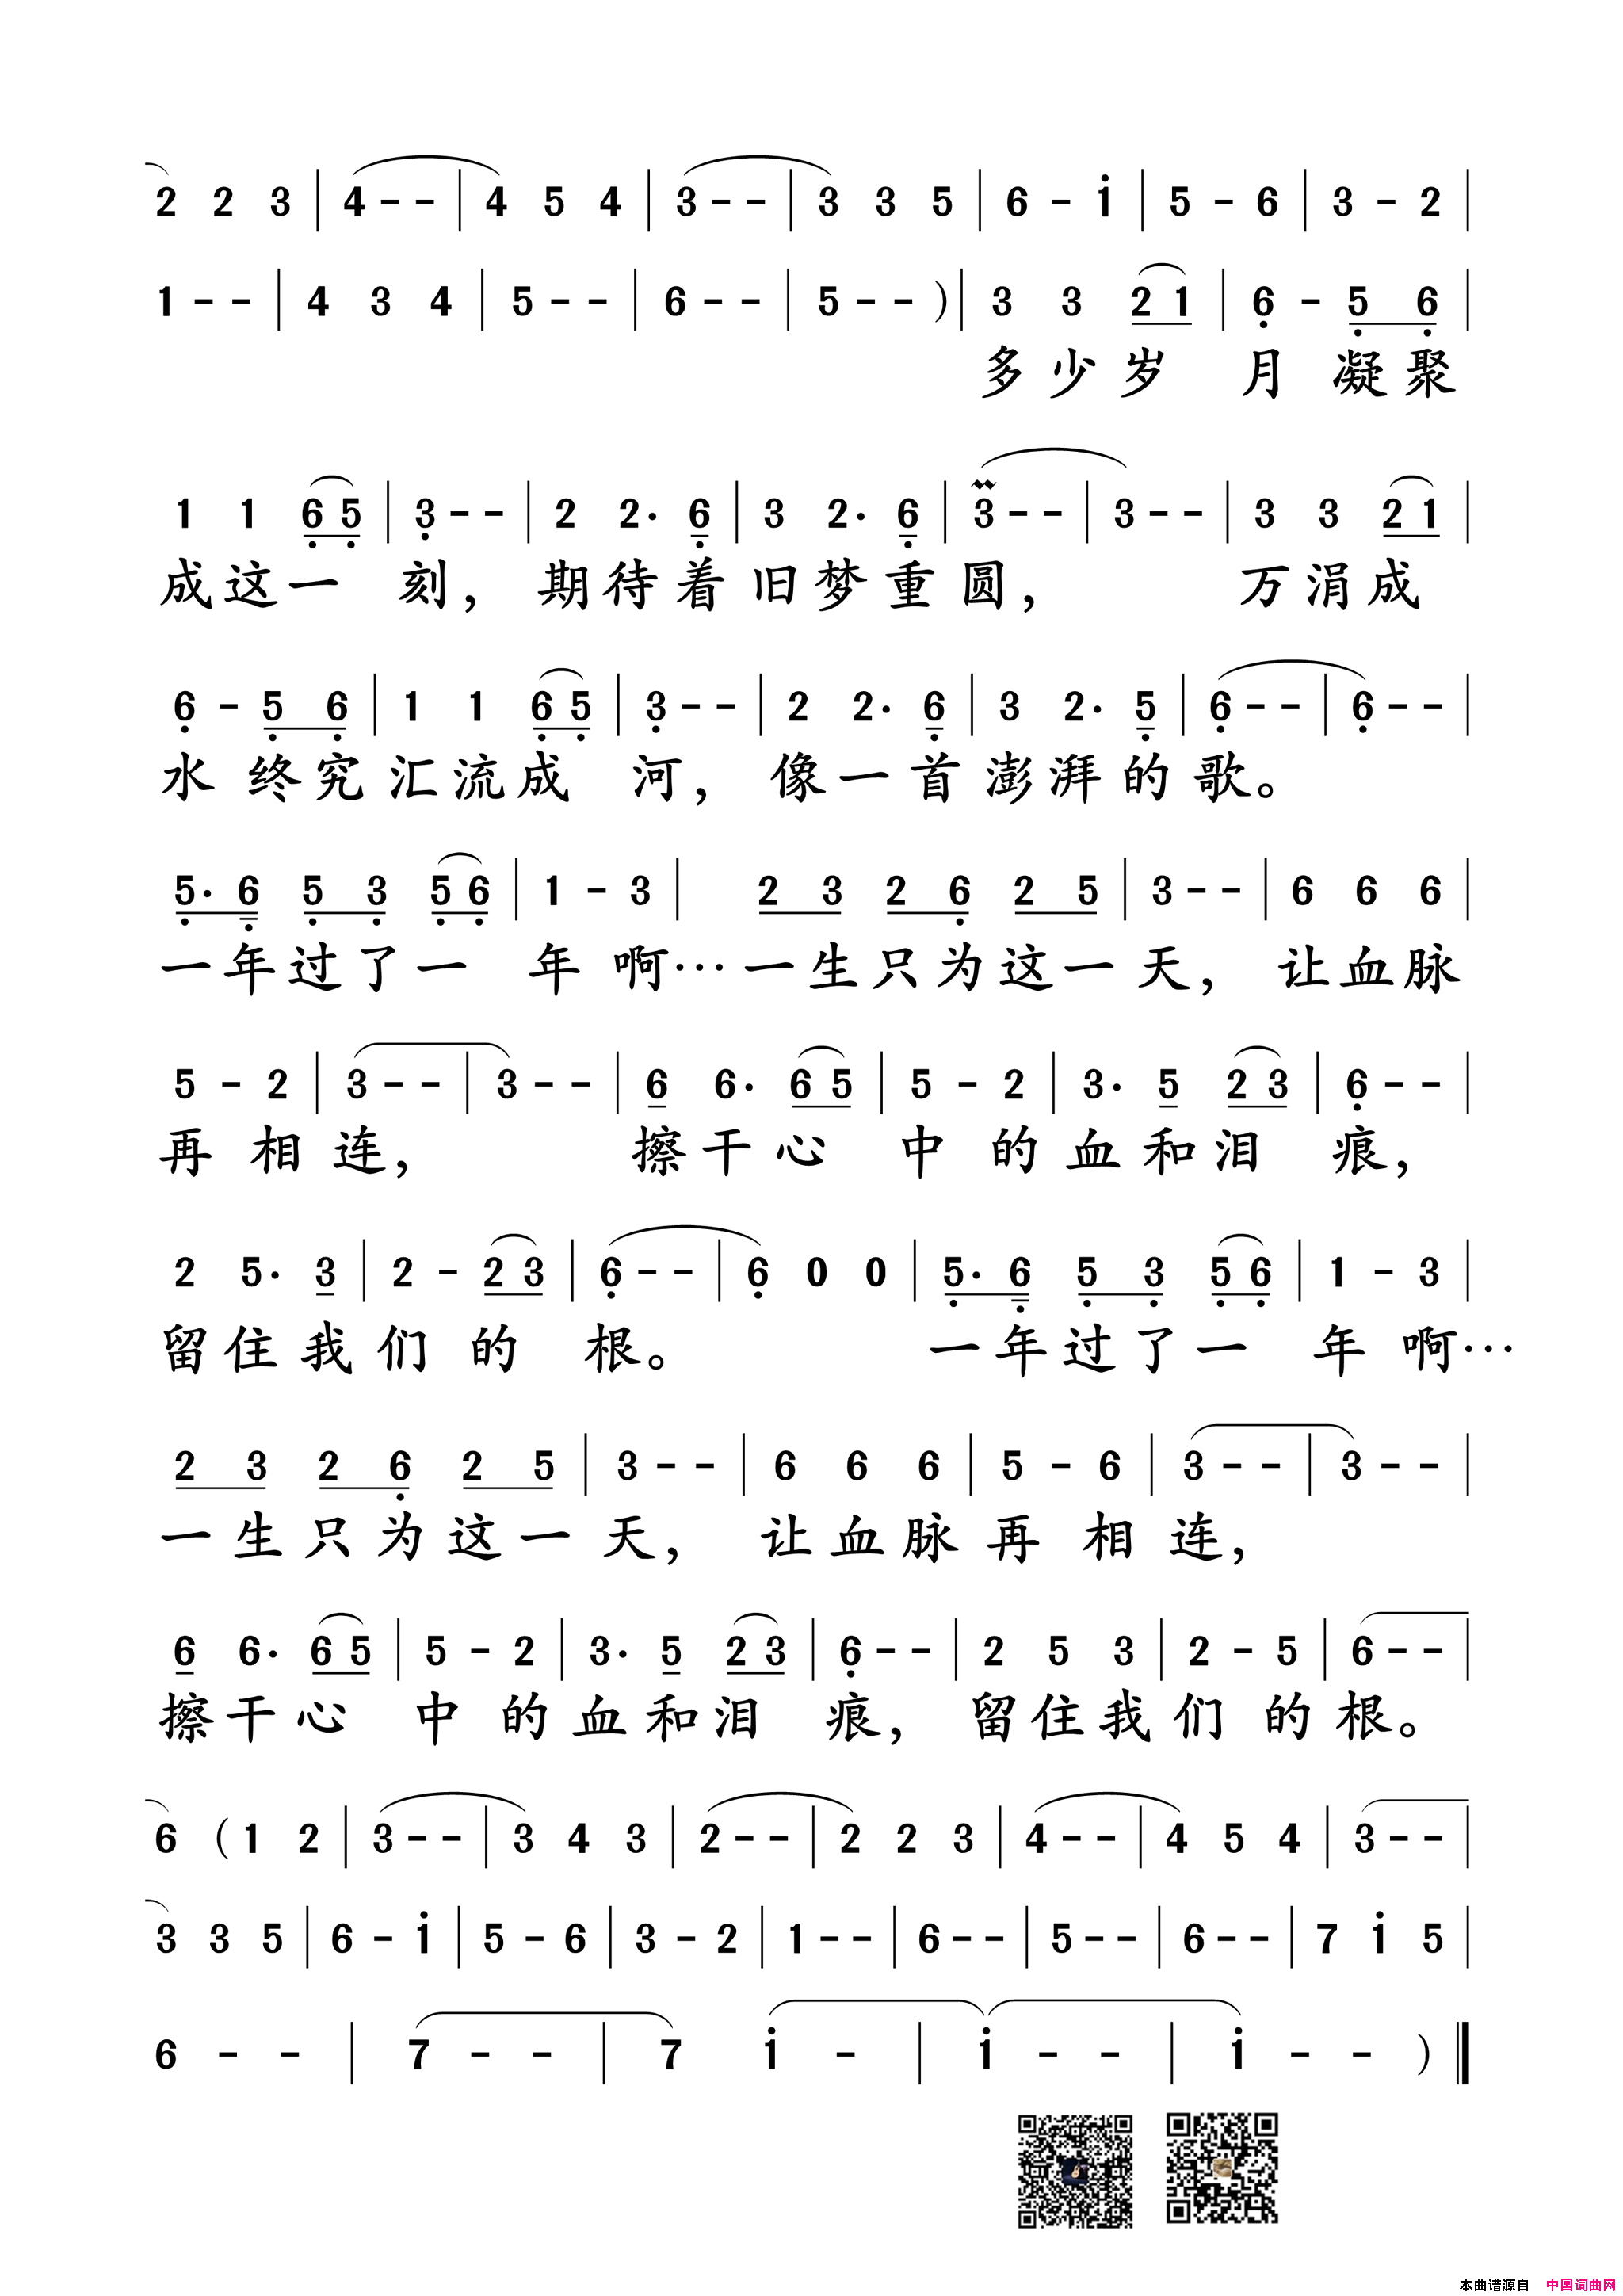 2 2 3 | 4 - - | 4 5 4 | 3 - - | 3 3 5 | 6 - i | 5 - 6 | 3 - 2 |
1 - - | 4 3 4 | 5 - - | 6 - - | 5 - - ) | 3 3 2 1 | 6 - 5 6 |
多少岁 月 凝聚
1 1 6 5 | 3 - - | 2 2· 6 | 3 2· 6 | 3 - - | 3 - - | 3 3 2 1 |
成这一 刻，期待着旧梦重圆， 万涓成
6 - 5 6 | 1 1 6 5 | 3 - - | 2 2· 6 | 3 2· 5 | 6 - - | 6 - - |
水 终究汇流成 河，像一首澎湃的歌。
5· 6 5 3 5 6 | 1 - 3 | 2 3 2 6 2 5 | 3 - - | 6 6 6 |
一年过了一 年 啊…一生只为这一天，让血脉
5 - 2 | 3 - - | 3 - - | 6 6· 6 5 | 5 - 2 | 3· 5 2 3 | 6 - - |
再 相 连， 擦干心 中 的血和泪 痕，
2 5· 3 | 2 - 2 3 | 6 - - | 6 0 0 | 5· 6 5 3 5 6 | 1 - 3 |
留住我们 的 根。 一年过了一 年 啊…
2 3 2 6 2 5 | 3 - - | 6 6 6 | 5 - 6 | 3 - - | 3 - - |
一生只为这一天，让血脉再 相 连，
6 6· 6 5 | 5 - 2 | 3· 5 2 3 | 6 - - | 2 5 3 | 2 - 5 | 6 - - |
擦干心 中 的血和泪 痕，留住我们 的根。
6 ( 1 2 | 3 - - | 3 4 3 | 2 - - | 2 2 3 | 4 - - | 4 5 4 | 3 - - |
3 3 5 | 6 - i | 5 - 6 | 3 - 2 | 1 - - | 6 - - | 5 - - | 6 - - | 7 i 5 |
6 - - | 7 - - | 7 i - | i - - | i - - )
本曲谱源自 中国词曲网